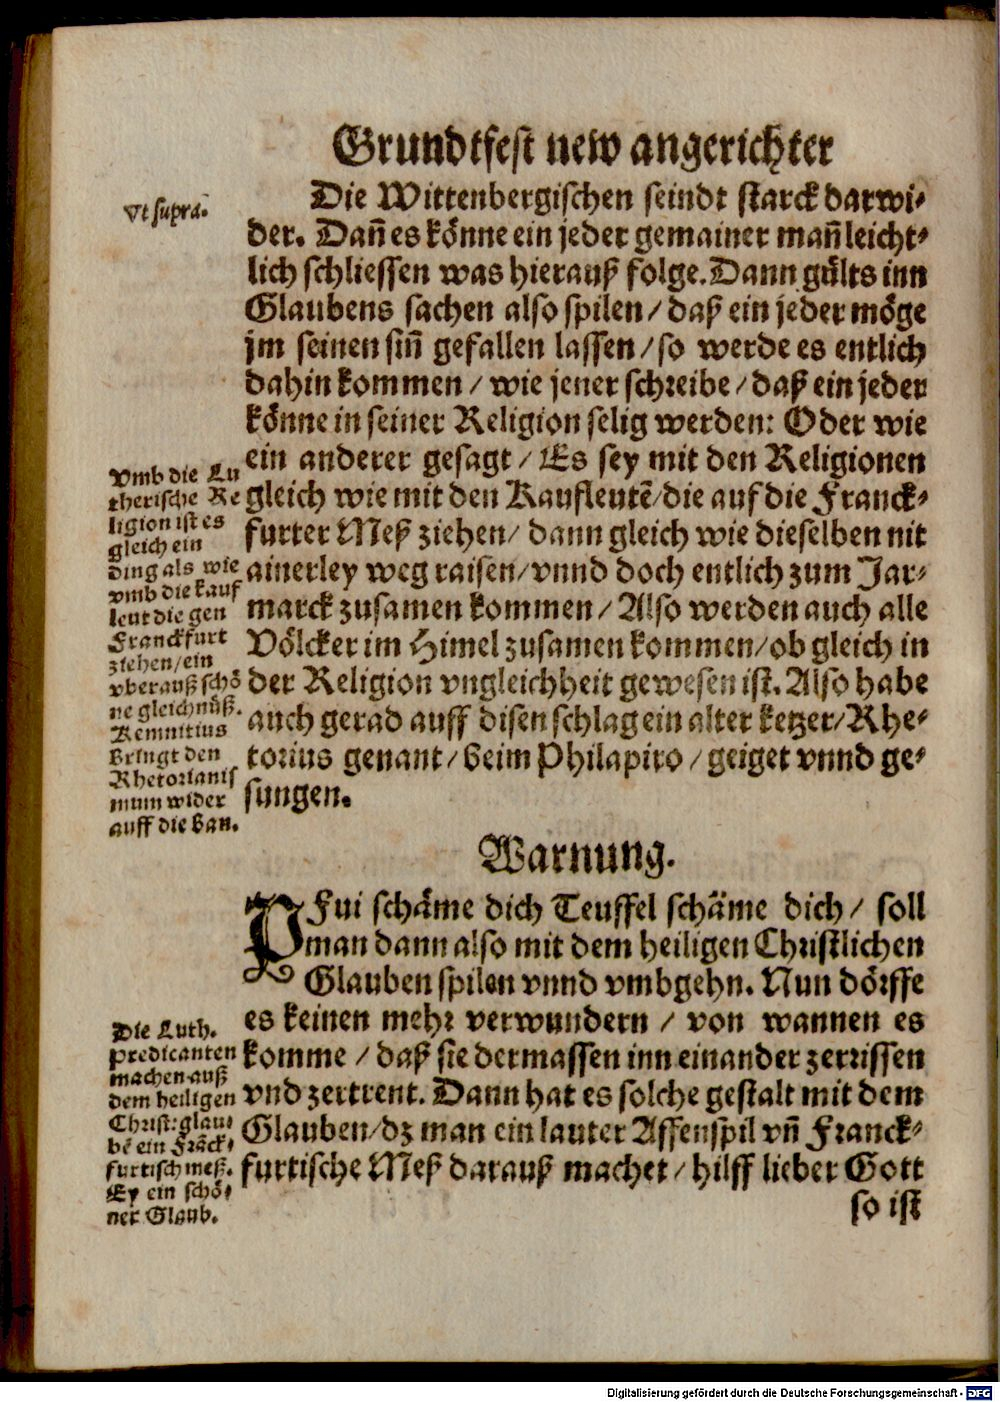 Grundtfest new angerichter
Vt supra.
Die Wittenbergischen seindt starck darwi-
der. Dañ es könne ein jeder gemainer mañ leicht-
lich schliessen was hierauß folge. Dann gülts inn
Glaubens sachen also spilen / daß ein jeder möge
jm seinen siñ gefallen lassen / so werde es entlich
dahin kommen / wie jener schreibe / daß ein jeder
könne in seiner Religion selig werden: Oder wie
ein anderer gesagt / Es sey mit den Religionen
gleich wie mit den Kaufleutē / die auf die Franck-
furter Meß ziehen / dann gleich wie dieselben nit
ainerley weg raisen / vnnd doch entlich zum Jar-
marck zusamen kommen / Also werden auch alle
Völcker im Himel zusamen kommen / ob gleich in
der Religion vngleichheit gewesen ist. Also habe
auch gerad auff disen schlag ein alter ketzer / Rhe-
torius genant / beim Philapiro / geiget vnnd ge-
sungen.
Vmb die Lu
therische Re
ligion ist es
gleich ein
ding als wie
vmb die kauf
leut die gen
Franckfurt
ziehen / ein
vberauß schö
ne gleichnüß.
Kemnitius
bringt den
Rhetorianis
mum wider
auff die ban.
Warnung.
PFui schäme dich Teuffel schäme dich / soll
man dann also mit dem heiligen Christlichen
Glauben spilen vnnd vmbgehn. Nun dörffe
es keinen mehr verwundern / von wannen es
komme / daß sie dermassen inn einander zerrissen
vnd zertrent. Dann hat es solche gestalt mit dem
Glauben / dz man ein lauter Affenspil vñ Franck-
furtische Meß darauß machet / hilff lieber Gott
Die Luth.
predicanten
machen auß
dem heiligen
Christ: glau-
bē ein Frāck-
furtisch meß.
Ey ein schö-
ner Glaub.
so ist
Digitalisierung gefördert durch die Deutsche Forschungsgemeinschaft - DFG